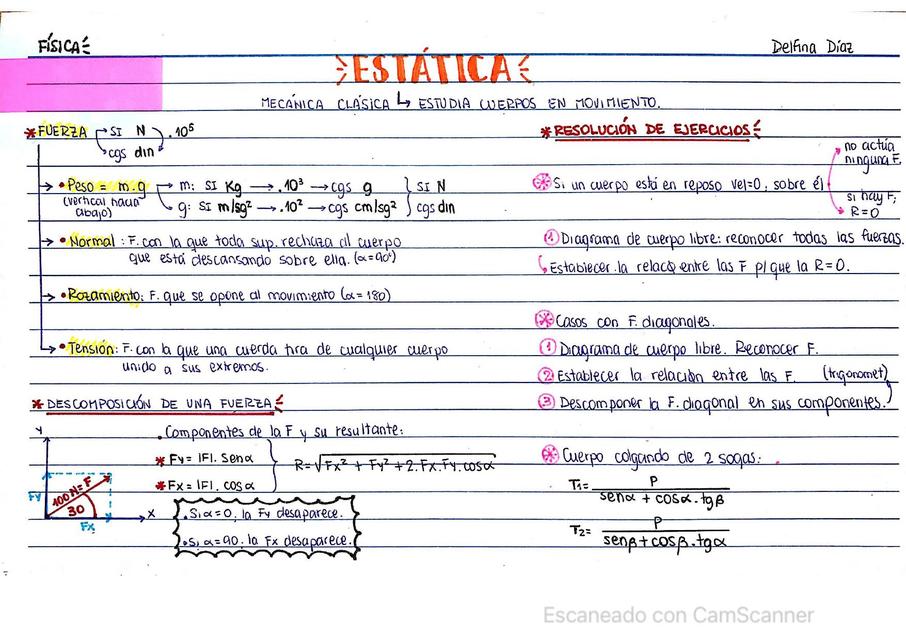 FÍSICA
Delfina Díaz
ESTÁTICA
MECÁNICA CLÁSICA ↳ ESTUDIA CUERPOS EN MOVIMIENTO.
* FUERZA → SI N ⟩ .10⁵
→ cgs din
→ • Peso = m.g → m: SI Kg → .10³ → cgs g } SI N
(vertical hacia abajo) → g: SI m/sg² → .10² → cgs cm/sg² } cgs din
→ • Normal: F. con la que toda sup. rechaza al cuerpo
que está descansando sobre ella. (α=90°)
→ • Rozamiento: F. que se opone al movimiento (α = 180)
→ • Tensión: F. con la que una cuerda tira de cualquier cuerpo
unido a sus extremos.
* DESCOMPOSICIÓN DE UNA FUERZA
Y
Fy
100 N = F
30
Fx
X
. Componentes de la F y su resultante:
* Fy = |F|. Senα
* Fx = |F|. cosα
R = √Fx² + Fy² + 2.Fx.Fy.cosα
. Si α=0, la Fy desaparece.
. Si α=90, la Fx desaparece.
* RESOLUCIÓN DE EJERCICIOS
* Si un cuerpo está en reposo vel=0, sobre él
no actúa
ninguna F.
si hay F,
R=0
① Diagrama de cuerpo libre: reconocer todas las fuerzas.
↳ Establecer la relac͞ entre las F p/ que la R=0.
* Casos con F. diagonales.
① Diagrama de cuerpo libre. Reconocer F.
② Establecer la relación entre las F. (trigonomet)
③ Descomponer la F. diagonal en sus componentes.
* Cuerpo colgando de 2 sogas:
T₁= P / senα + cosα . tgβ
T₂= P / senβ + cosβ . tgα
Escaneado con CamScanner